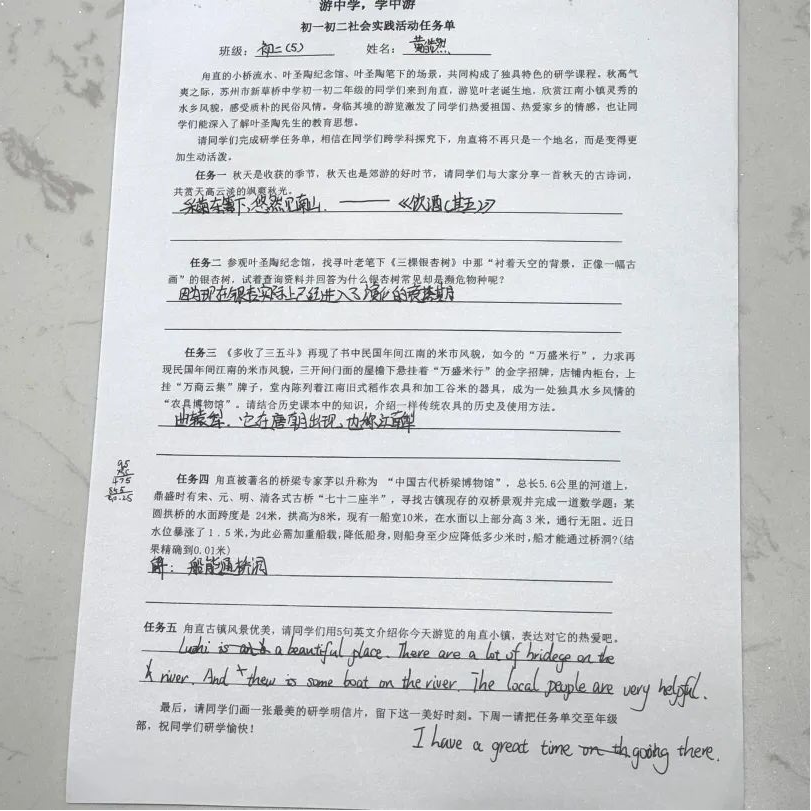 游中学，学中游
初一初二社会实践活动任务单
班级：初二(5) 姓名：黄皓烈
甪直的小桥流水、叶圣陶纪念馆、叶圣陶笔下的场景，共同构成了独具特色的研学课程。秋高气
爽之际，苏州市新草桥中学初一初二年级的同学们来到甪直，游览叶老诞生地，欣赏江南小镇灵秀的
水乡风貌，感受质朴的民俗风情。身临其境的游览激发了同学们热爱祖国、热爱家乡的情感，也让同
学们能深入了解叶圣陶先生的教育思想。
请同学们完成研学任务单，相信在同学们跨学科探究下，甪直将不再只是一个地名，而是变得更
加生动活泼。
任务一 秋天是收获的季节，秋天也是郊游的好时节，请同学们与大家分享一首秋天的古诗词，
共赏天高云淡的飒爽秋光。
采菊东篱下，悠然见南山. ——《饮酒(其五)》
任务二 参观叶圣陶纪念馆，找寻叶老笔下《三棵银杏树》中那“衬着天空的背景，正像一幅古
画”的银杏树，试着查询资料并回答为什么银杏树常见却是濒危物种呢？
因为现在银杏实际上已经进入了演化的衰落期
任务三 《多收了三五斗》再现了书中民国年间江南的米市风貌，如今的“万盛米行”，力求再
现民国年间江南的米市风貌，三开间门面的屋檐下悬挂着“万盛米行”的金字招牌，店铺内柜台，上
挂“万商云集”牌子，堂内陈列着江南旧式稻作农具和加工谷米的器具，成为一处独具水乡风情的
“农具博物馆”。请结合历史课本中的知识，介绍一样传统农具的历史及使用方法。
曲辕犁. 它在唐朝出现，也称江南犁
任务四 甪直被著名的桥梁专家茅以升称为 “中国古代桥梁博物馆”，总长5.6公里的河道上，
鼎盛时有宋、元、明、清各式古桥“七十二座半”，寻找古镇现存的双桥景观并完成一道数学题：某
圆拱桥的水面跨度是 24米，拱高为8米，现有一船宽10米，在水面以上部分高 3 米，通行无阻。近日
水位暴涨了 1.5 米,为此必需加重船载,降低船身,则船身至少应降低多少米时,船才能通过桥洞?(结
果精确到0.01米)
解：船能通桥洞
任务五 甪直古镇风景优美，请同学们用5句英文介绍你今天游览的甪直小镇，表达对它的热爱吧。
Luzhi is a beautiful place. There are a lot of bridege on the
river. And thew is some boat on the river. The local people are very helpful.
最后，请同学们画一张最美的研学明信片，留下这一美好时刻。下周一请把任务单交至年级
部，祝同学们研学愉快！
I have a great time going there.